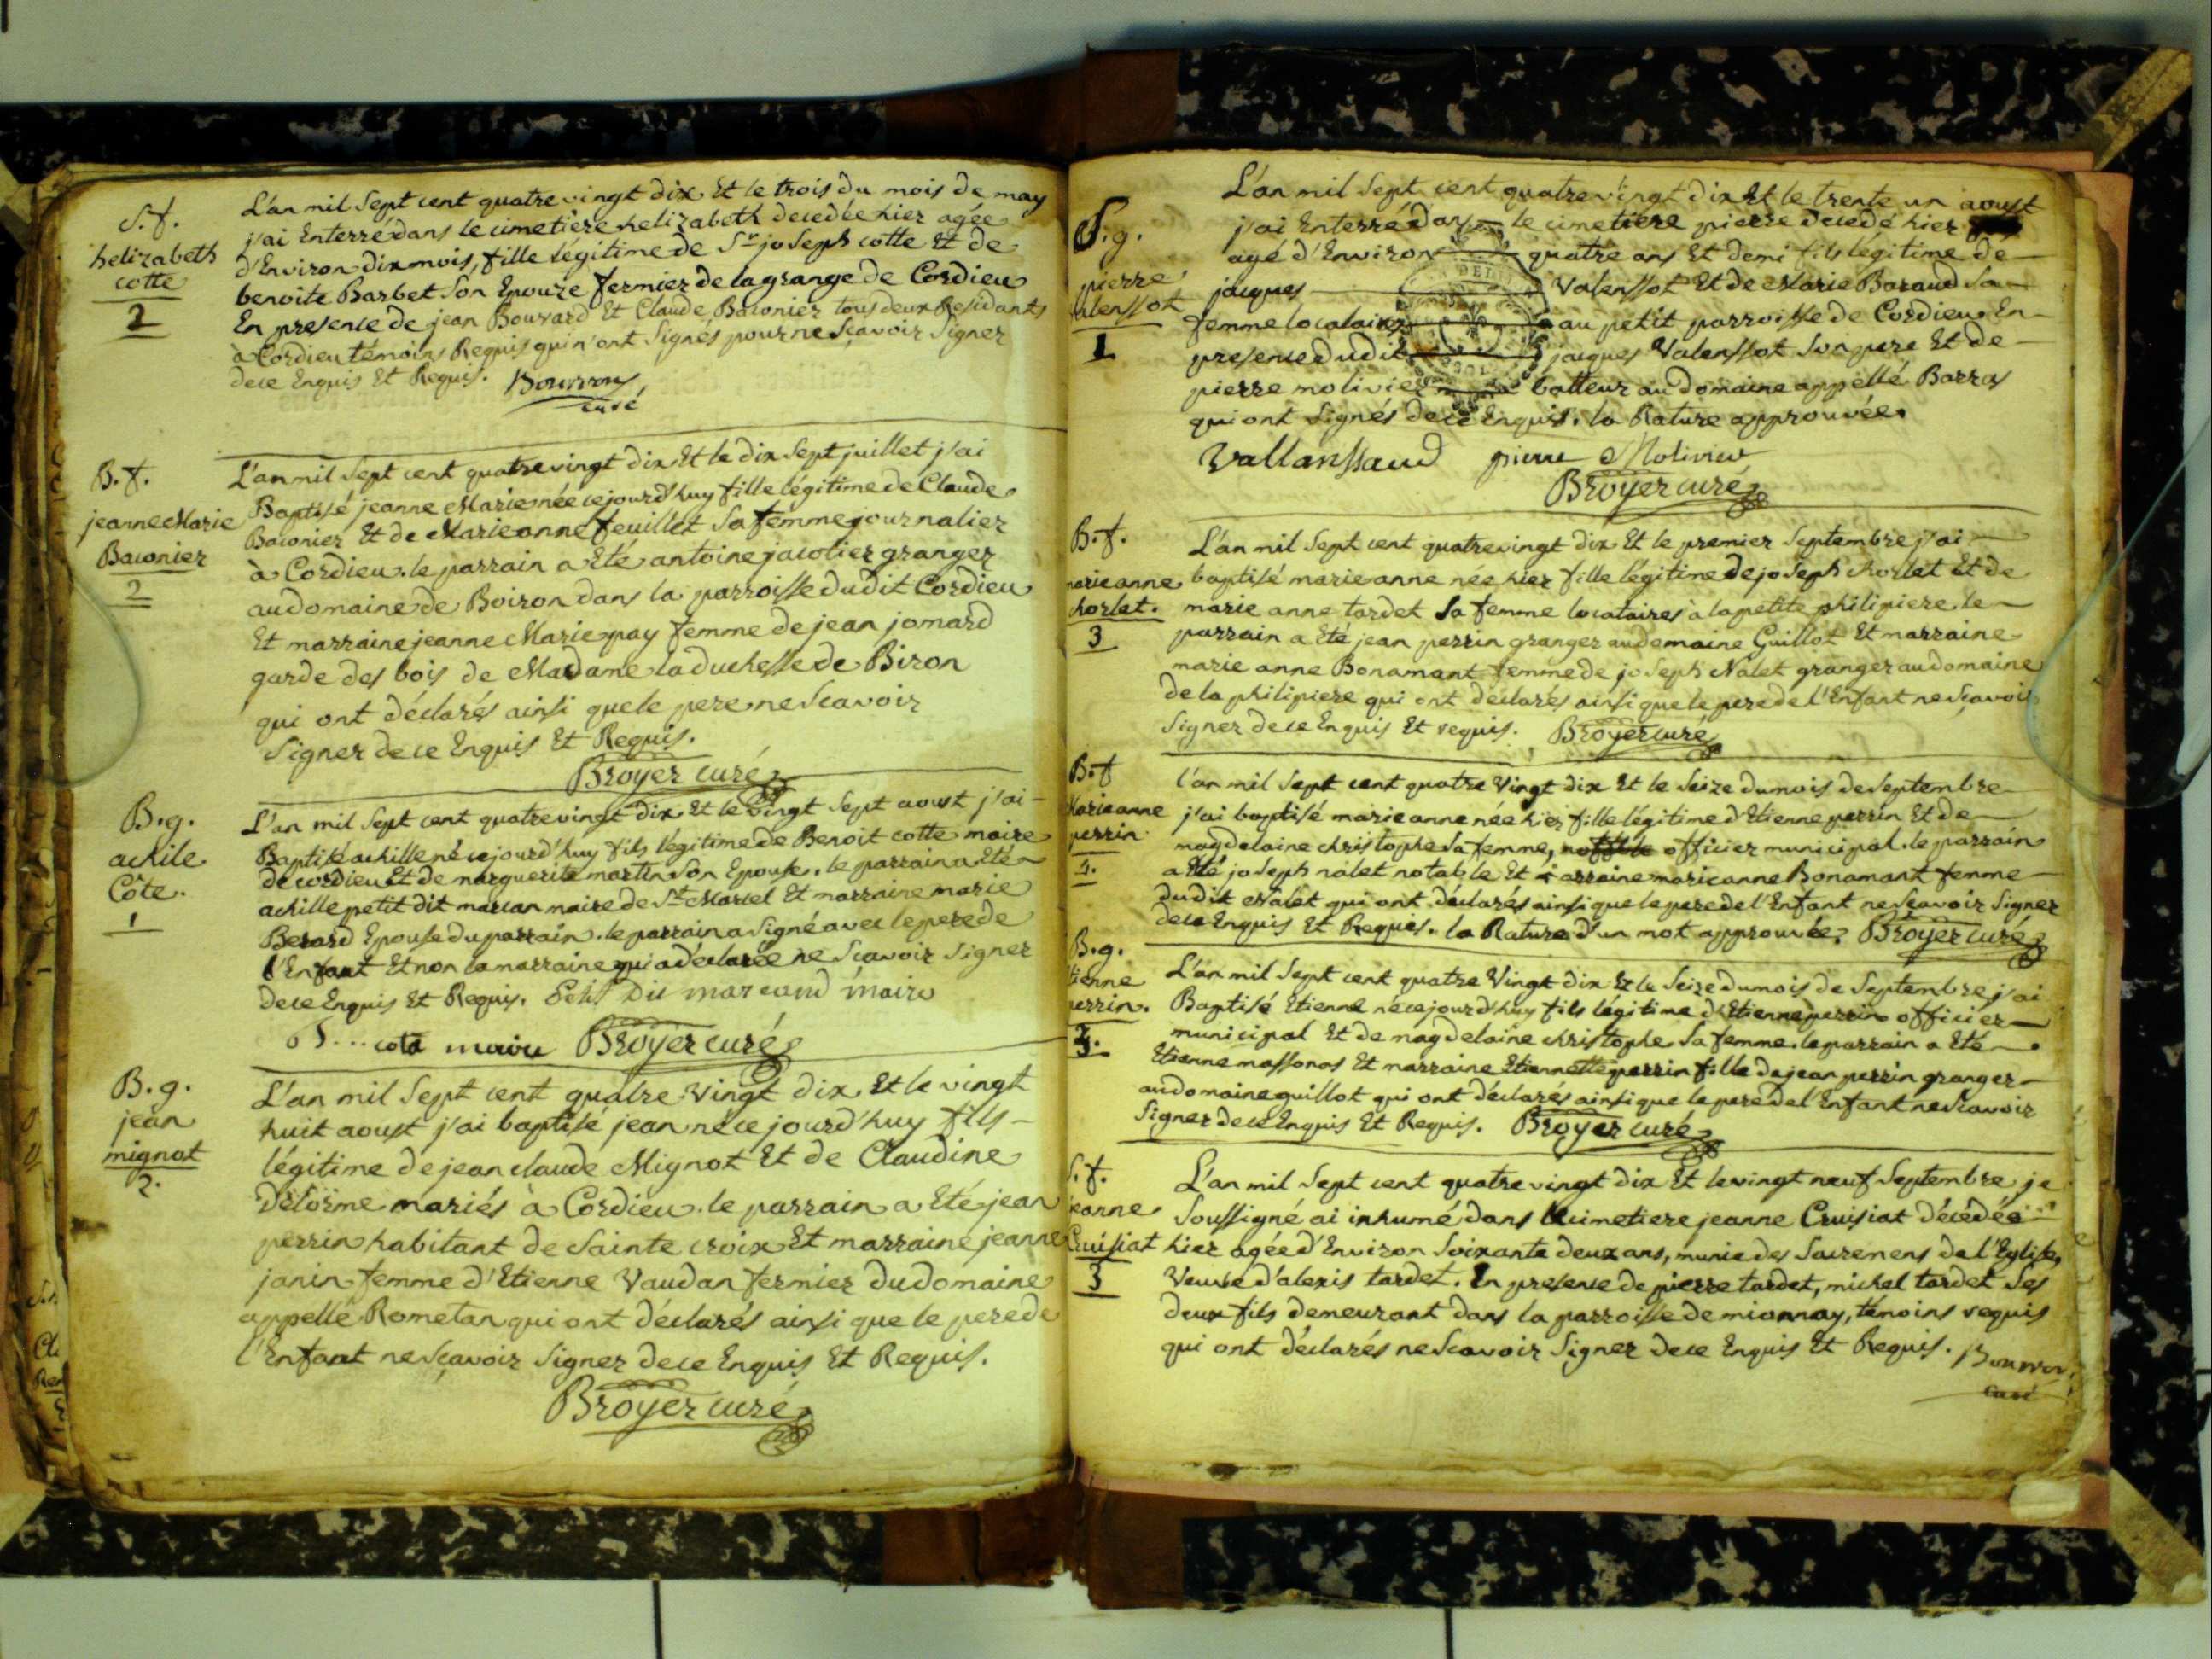 S.f.
helizabeth
cotte
2
L'an mil Sept cent quatre vingt dix Et le trois du mois de may
j'ai Enterré dans le cimetiere helizabeth decedée hier agée
d'Environ dix mois, fille légitime de Sr joseph cotte Et de
benoite Barbet son Epouze fermier de la grange de Cordieu
En presence de jean Bouvard Et Claude Baconier tous deux Residants
à Cordieu témoins Requis qui n'ont Signés pour ne Scavoir Signer
de ce Enquis Et Requis.
curé
B.f.
jeanne Marie
Baconier
2
L'an mil Sept cent quatre vingt dix Et le dix Sept juillet j'ai
Baptisé jeanne Marie née cejourd'huy fille légitime de Claude
Baconier Et de Marie anne feuillet Sa femme journalier
à Cordieu. le parrain a Eté antoine jacolier granger
au domaine de Boiron dans la parroisse dudit Cordieu
Et marraine jeanne Marie pay femme de jean jomard
garde des bois de Madame la duchesse de Biron
qui ont déclarés ainsi que le pere ne Scavoir
Signer de ce Enquis Et Requis.
Broyer curé
B.g.
achile
Côte.
1
L'an mil Sept cent quatre vingt dix Et le vingt Sept aoust j'ai
Baptisé achille né cejourd'huy fils légitime de Benoit cotte maire
de cordieu Et de marguerite martin Son Epouse. le parrain a Eté
achille petit dit marcan maire de St Marcel Et marraine marie
Berard Epouse du parrain. le parrain a Signé avec le pere de
l'Enfant Et non la marraine qui a déclarée ne Scavoir Signer
de ce Enquis Et Requis. Petit Dit marcand maire
cote maire Broyer curé
B.g.
jean
mignot
2.
L'an mil Sept cent quatre Vingt dix Et le vingt
huit aoust j'ai baptisé jean né ce jourd'huy fils
légitime de jean claude Mignot Et de Claudine
Delorme mariés à Cordieu. le parrain a Eté jean
perrin habitant de Sainte croix Et marraine jeanne
janin femme d'Etienne Vaudan fermier du domaine
appellé Rometan qui ont déclarés ainsi que le pere de
l'Enfant ne Scavoir Signer de ce Enquis Et Requis.
Broyer curé
S.g.
pierre
Valenssot
1
L'an mil Sept cent quatre vingt dix Et le trente un aoust
j'ai Enterré dans le cimetiere pierre decedé hier
agé d'Environ quatre ans Et demi fils légitime de
jacques Valenssot Et de Marie Baraud Sa
femme locataires au petit parroisse de Cordieu En
presence dudit jacques Valenssot Son pere Et de
pierre molivier batteur au domaine appellé Barras
qui ont Signés de ce Enquis. la Rature approuvée.
Vallanssaud pierre Molivier
Broyer curé
B.f.
marie anne
chorlet.
3
L'an mil Sept cent quatre vingt dix Et le premier Septembre j'ai
baptisé marie anne née hier fille légitime de joseph chorlet Et de
marie anne tardet Sa femme locataires à la petite philipiere. le
parrain a Eté jean perrin granger au domaine Guillot Et marraine
marie anne Bonamant femme de joseph Nalet granger au domaine
de la philipiere qui ont déclarés ainsi que le pere de l'Enfant ne Scavoir
Signer de ce Enquis Et requis. Broyer curé
B.f
Marie anne
perrin
4.
l'an mil Sept cent quatre Vingt dix Et le Seize du mois de Septembre
j'ai baptisé marie anne née hier fille légitime d'Etienne perrin Et de
magdelaine christophe Sa femme, officier municipal. le parrain
a Eté joseph nalet notable Et marraine marie anne Bonamant femme
dudit Nalet qui ont déclarés ainsi que le pere de l'Enfant ne Scavoir Signer
de ce Enquis Et Requis. la Rature d'un mot approuvée. Broyer curé
B.g.
Etienne
perrin.
L'an mil Sept cent quatre Vingt dix Et le Seize du mois de Septembre j'ai
Baptisé Etienne né cejourd'huy fils légitime d'Etienne perrin officier
municipal Et de magdelaine christophe Sa femme. le parrain a Eté
Etienne massonos Et marraine Etiennette perrin fille de jean perrin granger
au domaine guillot qui ont déclarés ainsi que le pere de l'Enfant ne Scavoir
Signer de ce Enquis Et Requis. Broyer curé
S.f.
jeanne
Cruisiat
3
L'an mil Sept cent quatre vingt dix Et le vingt neuf Septembre je
Soussigné ai inhumé dans le cimetiere jeanne Cruisiat décédée
hier agée d'Environ Soixante deux ans, munie des Sacremens de l'Eglise,
Veuve d'alexis tardet. En presence de pierre tardet, michel tardet Ses
deux fils demeurant dans la parroisse de mionnay, témoins requis
qui ont déclarés ne Scavoir Signer de ce Enquis Et Requis.
curé